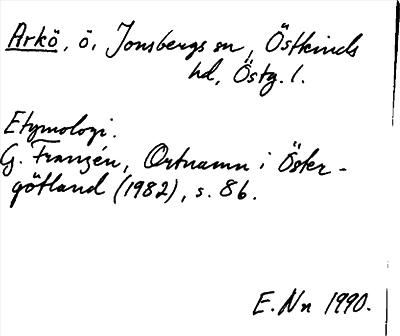 Arkö, ö, Jonsbergs sn, Östkinds
hd, Östg. l.
Etymologi.
G. Franzén, Ortnamn i Öster-
götland (1982), s. 86.
E. Nn 1990.